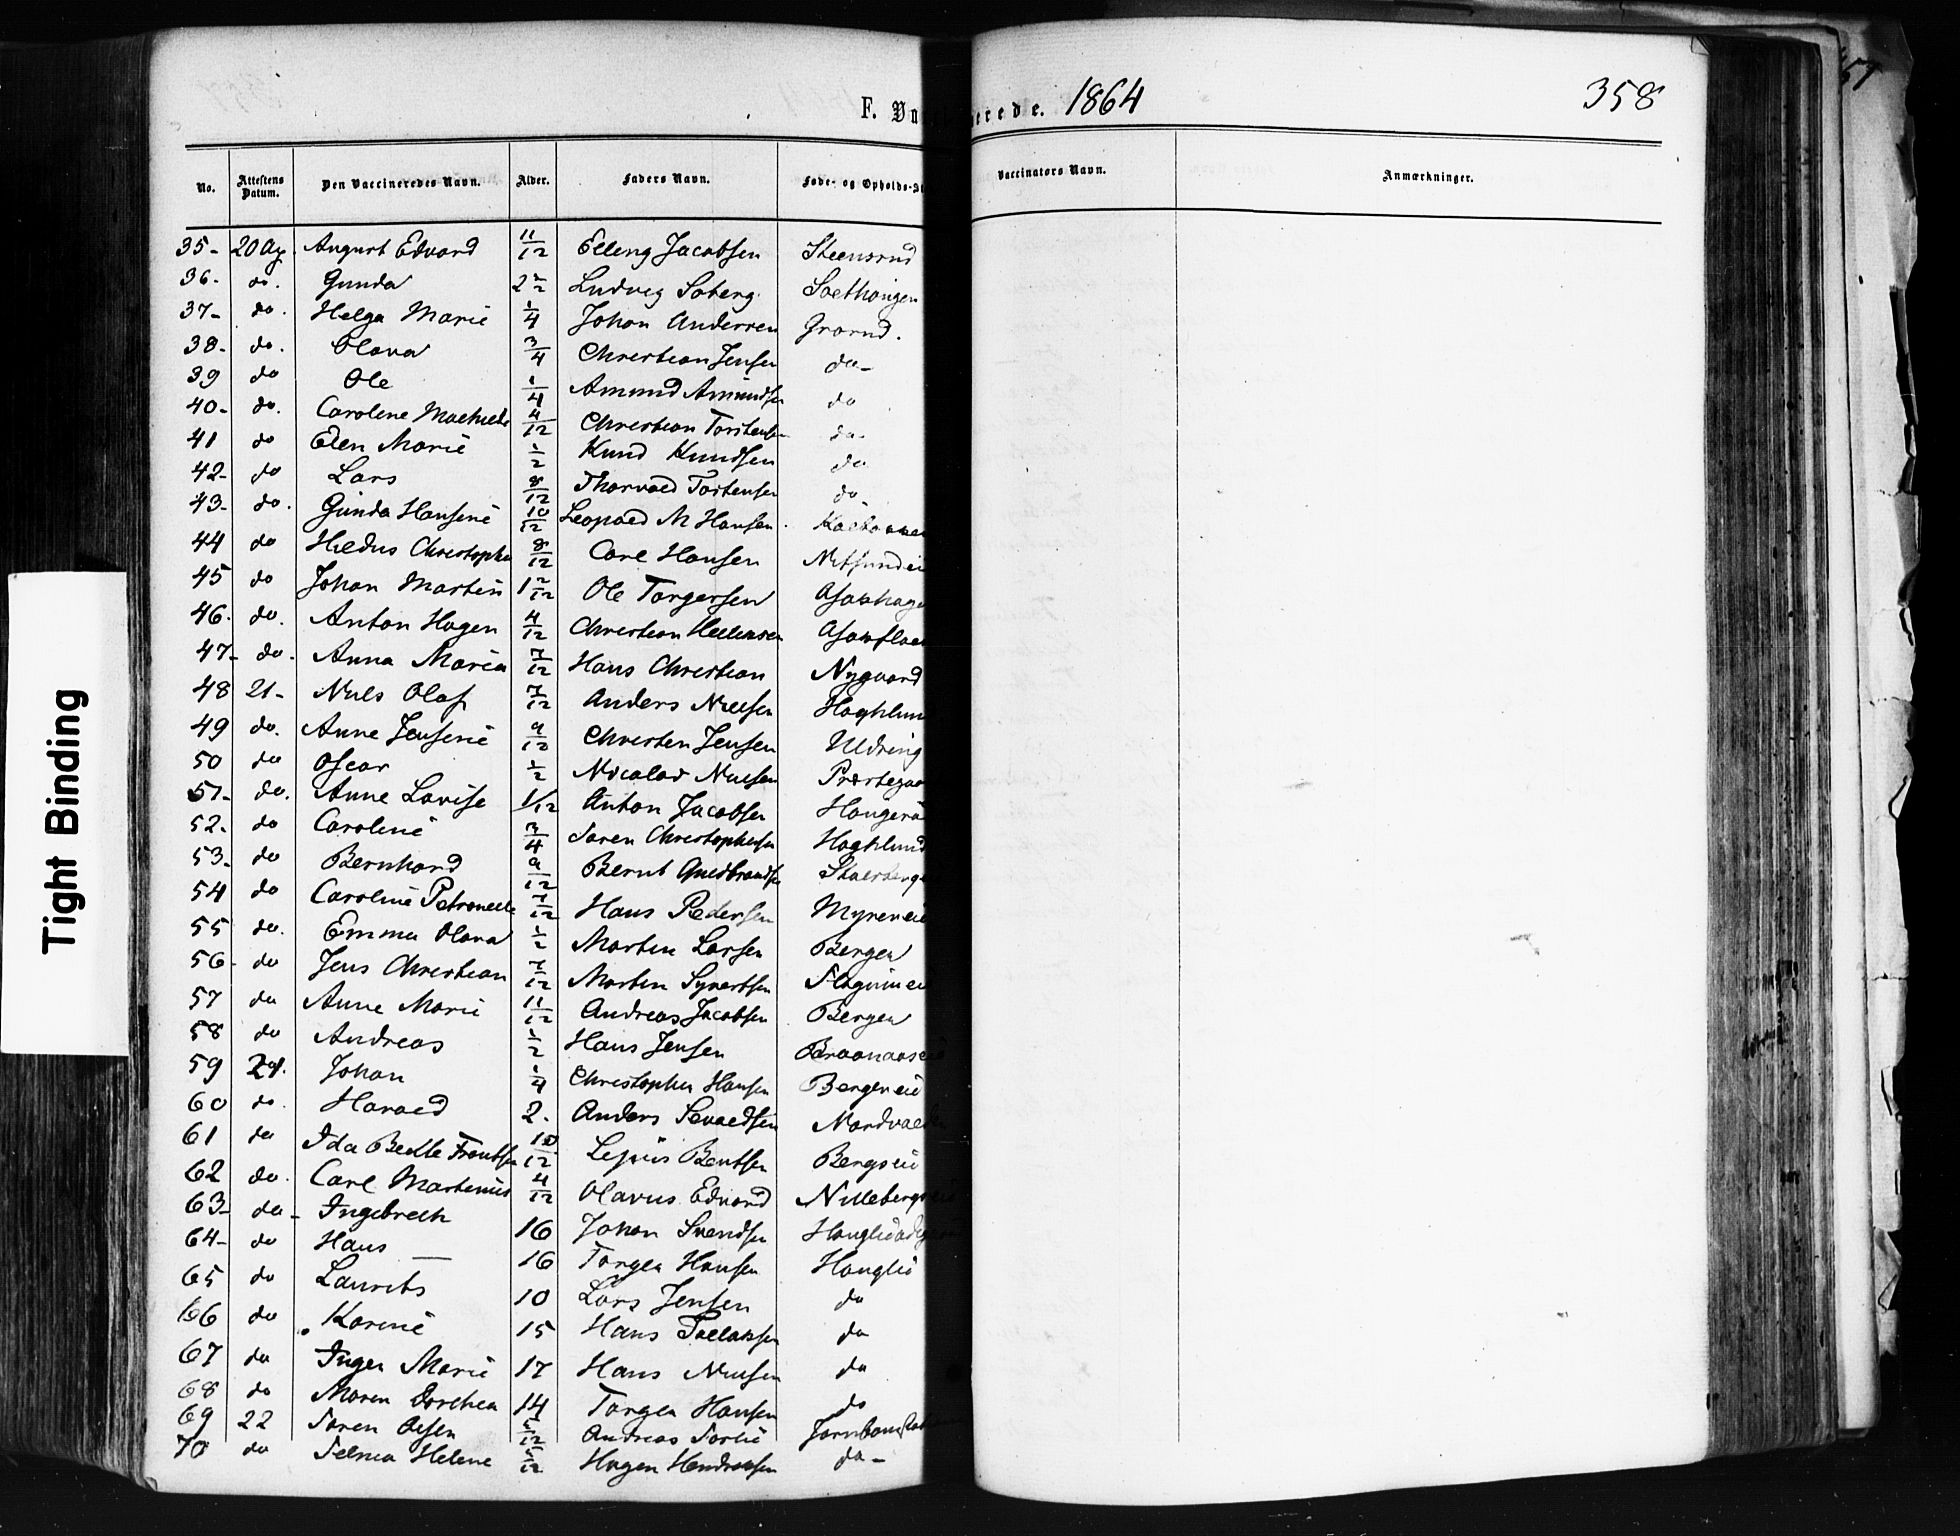 F. Va
erede. 1864
358
No. Attestens Datum. Den Vaccineredes Navn. Alder. Faders Navn. Føde- og Opholds-St
Vaccinators Navn. Anmærkninger.
35- 20 Ag. August Edvard 11/12 Elleng Jacobsen Steensrud
36- do. Gunda 2 Ludvig Soberg
37- do. Helga Marie 1/4 Johan Andersen Grorud.
38- do. Olava 3/4 Christian Jensen do-
39 do Ole 1/4 Amund Amundsen do
40- do. Caroline Mathilde 4/12 Christian Torstensen do-
41 do Elen Marie 1/2 Knud Knudsen do
42- do Lars 8/12 Thorvald Torstensen do
43- do. Gunda Hansine 10/12 Leopold M Hansen
44 do Hildus Christopher 8/12 Carl Hansen
45 do Johan Martin 1 Ole Torgersen
46. do. Anton Hagen 4/12 Christian
47- do. Anna Maria 7/12 Hans Christian Nygaard
48 21- Niels Olaf 7/12 Anders Nielsen Hoghlund
49 do. Anne Jensine 9/12 Christen Jensen
50 do Oscar 1/2 Nicolai Nielsen Præstegaar
51- do. Anne Lovise 1/12 Anton Jacobsen
52- do Caroline 3/4 Soren Christophersen Hoghlund
53- do Bernhard 9/12 Bernt Guldbrandsen
54 do Caroline Petronelle 7/12 Hans Pedersen Myrereie
55 do. Emma Olava 1/2 Martin Larsen Bergen
56- do Jens Christian 7/12 Martin Syvertsen
57 do Anne Marie 11/12 Andreas Jacobsen Bergen
58 do Andreas 1/2 Hans Jensen Braanaaseie
59 21. Johan 1/4 Christopher Hansen Bergereie
60 do. Harald 2. Anders Sevaldsen
61 do Ida Beate Frantsen 10/12 Bentsen Bergseie
62 do. Carl Martinius 4/12 Olavus Edvard Nillebergseie
63- do- Ingebreth 16 Johan Svendsen
64- do Hans 16 Torger Hansen Hauglie
65 do Laurits 10 Lars Jensen do
66 do Karine 15 Hans do
67 do Inger Marie 17 Hans Nielsen do
68 do Maren Dorthea 14 Torger Hansen do
69 22 Soren Olsen Andreas Sorlie
70 do Selma Helene Hagen Hendriksen do-
Tight Binding